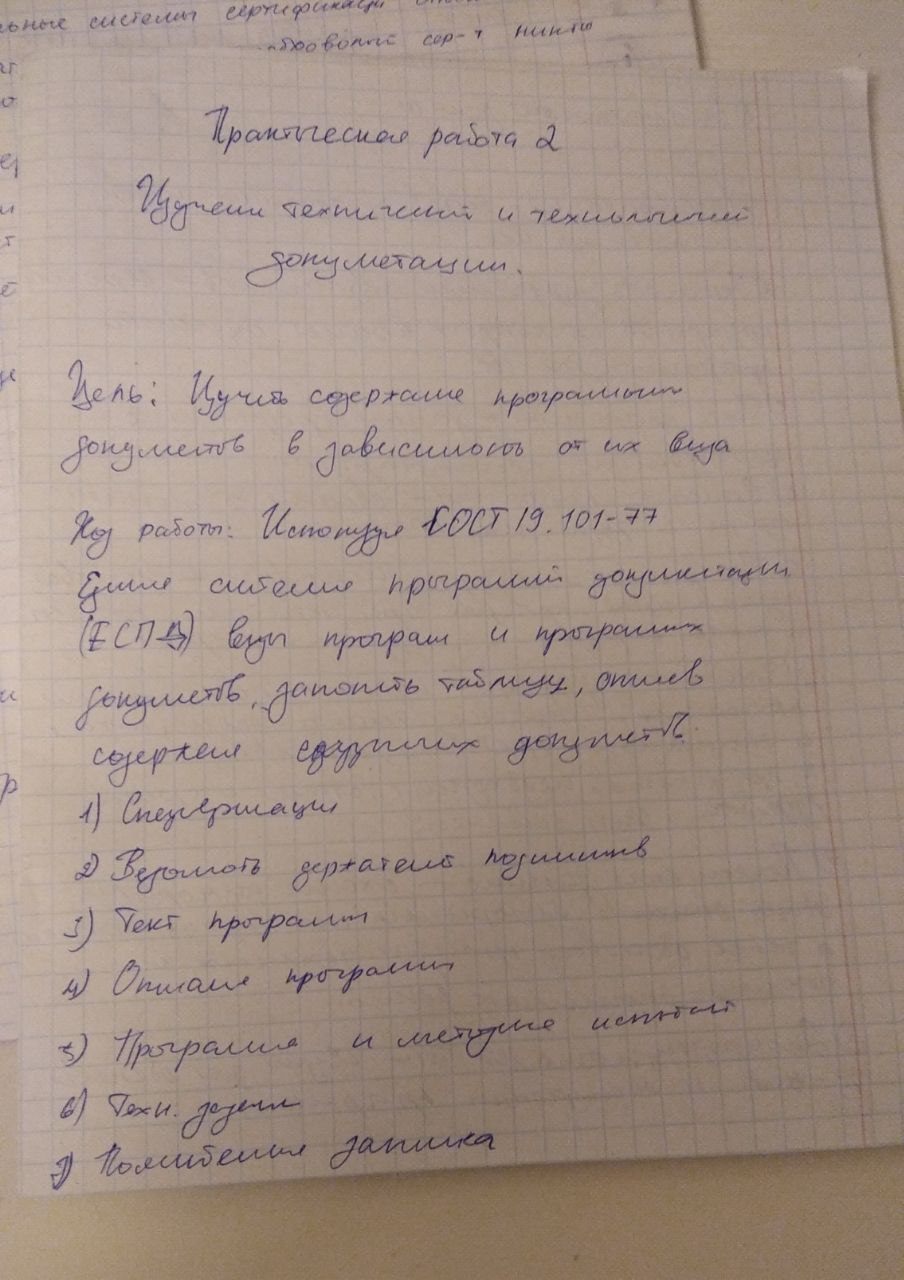 льные системы сертификаци
сер-т
Практическая работа 2
Изучени технический и технологичий
докуметации.
Цель: Изучить содержание програмных
документов в зависимость от их вида
Ход работы: Используя ГОСТ 19.101-77
Едине система програмий документации
(ЕСПД) виды програм и програмных
документов, заполнить таблицу, описав
содержание следующих документов.
1) Спецификации
2) Ведомость держателей подлиников
3) Текст програмы
4) Описание програмы
5) Програмие и методике испытат
6) Техн. задани
7) Пояснителная записка